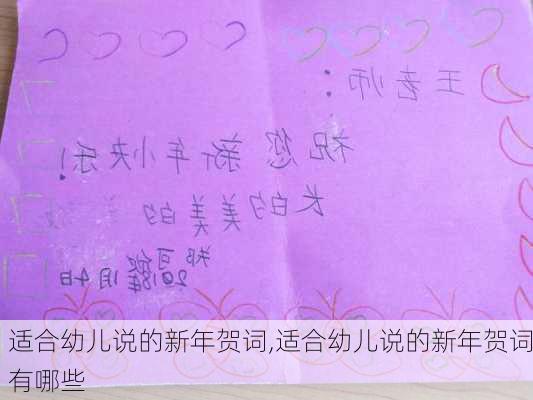 王老师:
祝您新年快乐!
长的美美的
适合幼儿说的新年贺词,适合幼儿说的新年贺词
有哪些